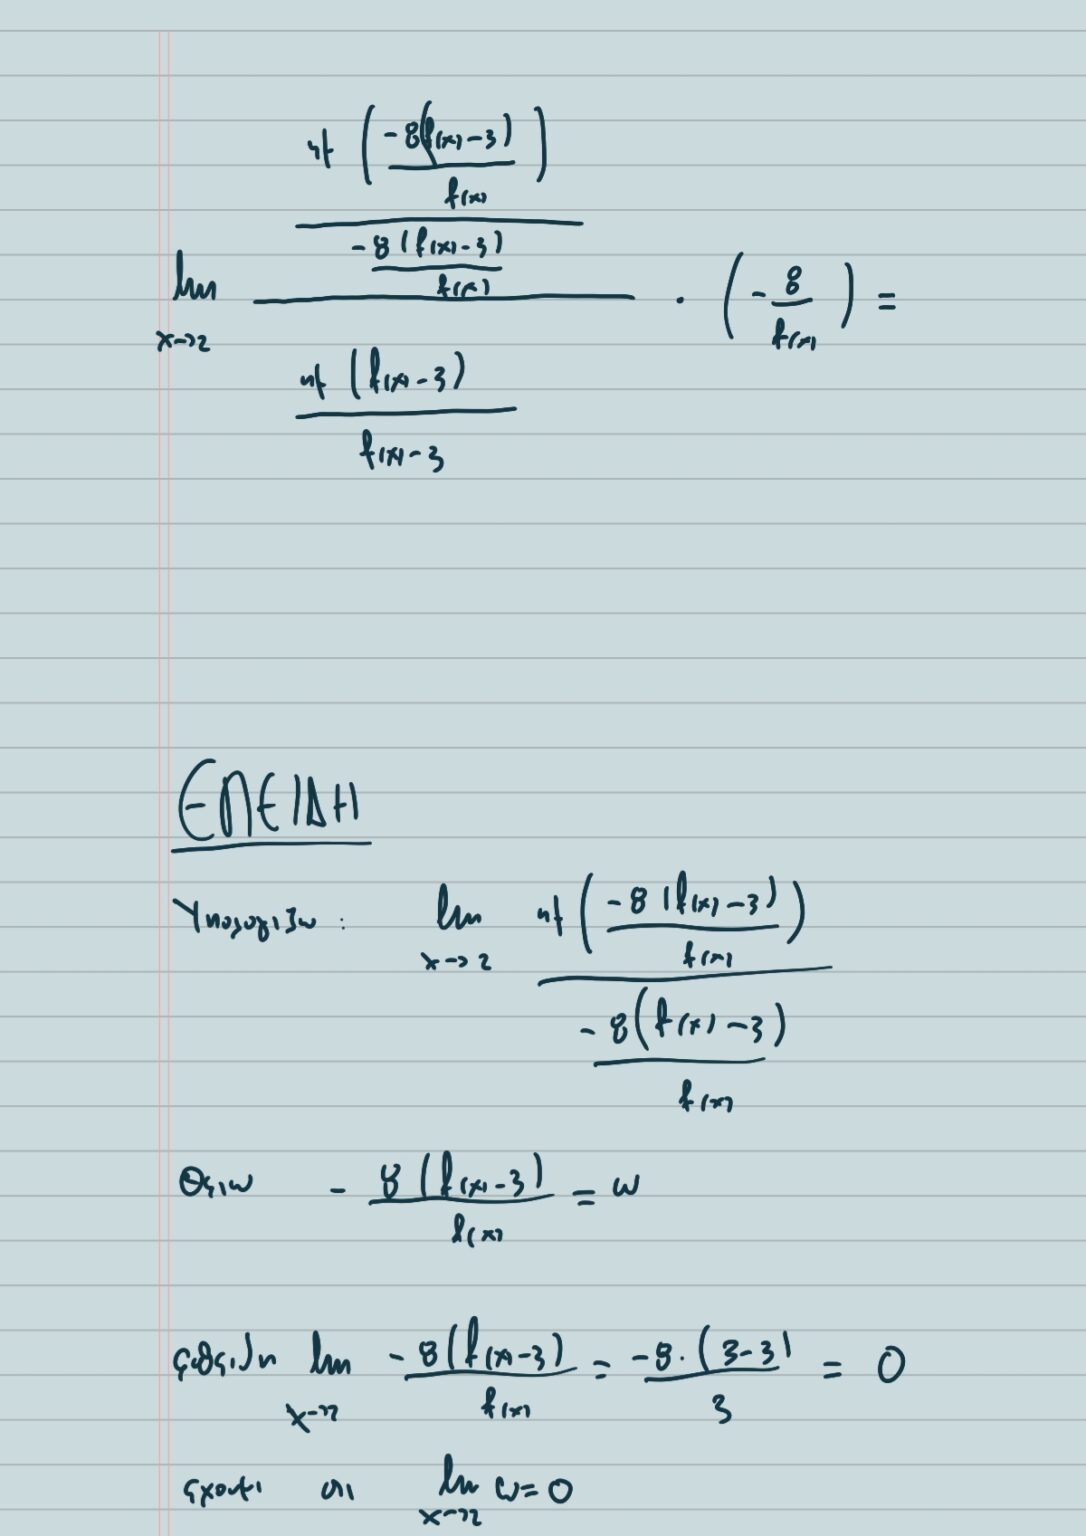 ημ ( -8(f(x)-3) / f(x) )
-8(f(x)-3) / f(x)
lim x→2 · ( - 8 / f(x) ) =
ημ (f(x)-3)
f(x)-3
ΕΠΕΙΔΗ
Υπολογίζω : lim x→2 ημ ( -8(f(x)-3) / f(x) )
-8(f(x)-3) / f(x)
Θέτω - 8(f(x)-3) / f(x) = ω
επειδή lim x→2 -8(f(x)-3) / f(x) = -8·(3-3) / 3 = 0
έχουμε ότι lim x→2 ω=0